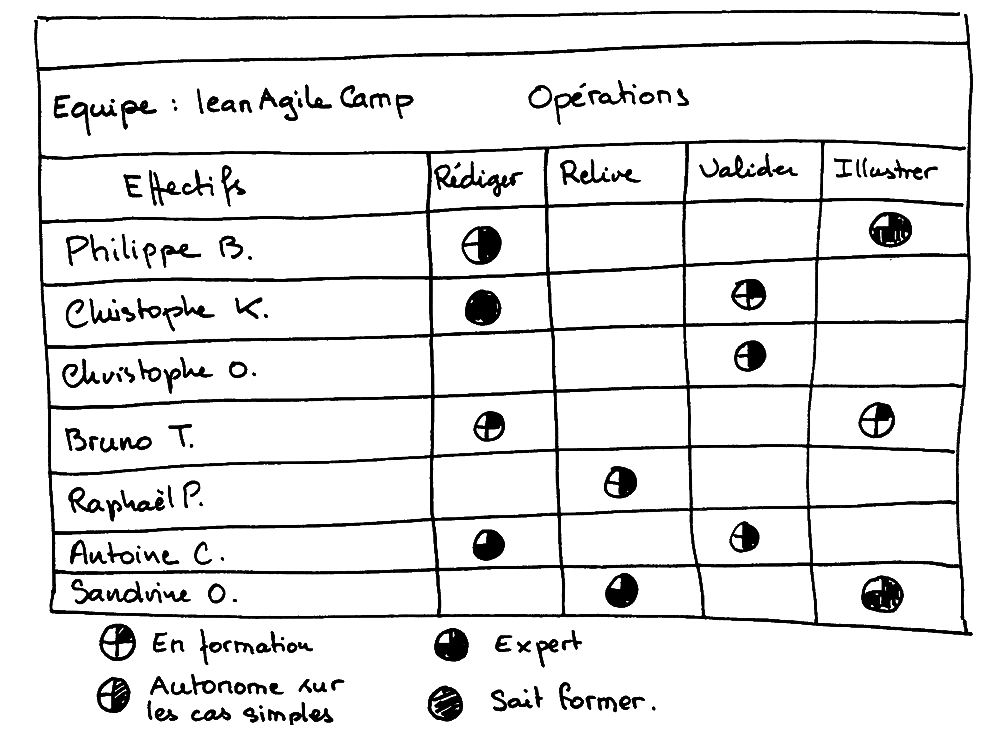 Equipe : leanAgile Camp Opérations
Effectifs Rédiger Relire Valider Illustrer
Philippe B.
Christophe K.
Christophe O.
Bruno T.
Raphaël P.
Antoine C.
Sandrine O.
En formation Expert
Autonome sur
les cas simples Sait former.